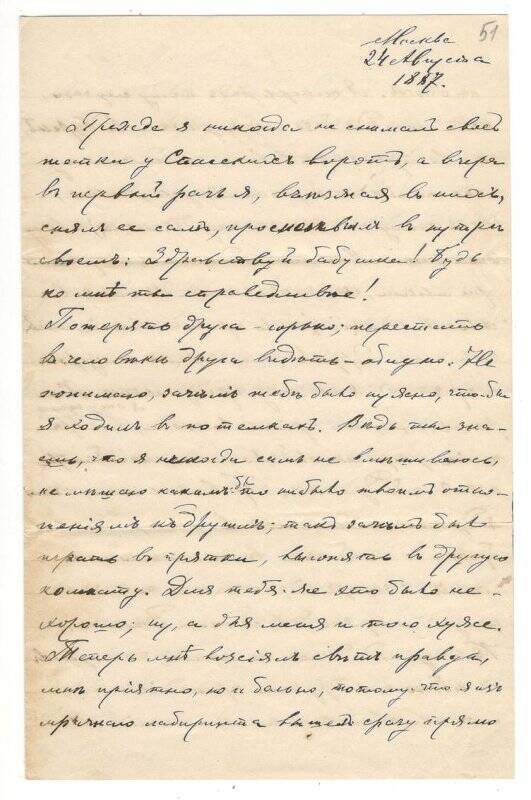 51
Москва
24 Августа
1887.
Прежде я никогда не снималъ своей
шапки у Спасскихъ воротъ, а вчера
въ первый разъ я, въѣзжая въ нихъ,
снялъ ее самъ, въ нутри
своемъ: Здравствуй бабушка! Будь
ко мнѣ ты справедливѣе!
Потерять друга – горько; перестать
въ человѣкѣ друга видѣть – обидно. Не
понимаю, зачѣмъ тебѣ было нужно, чтобы
я ходилъ въ потемкахъ. Вѣдь ты зна-
ешь, что я никогда самъ не вмѣшиваюсь,
не мѣшаю какимъ бы то нибыло твоимъ отно-
шеніямъ къ другимъ; такъ зачѣмъ было
играть въ прятки, выгонять въ другую
комнату. Для тебя же это было не-
хорошо; ну, а для меня и того хуже.
Теперь мнѣ возсіялъ свѣтъ правды,
мнѣ пріятно, но и больно, потому что я изъ
мрачнаго лабиринта вышелъ сразу прямо